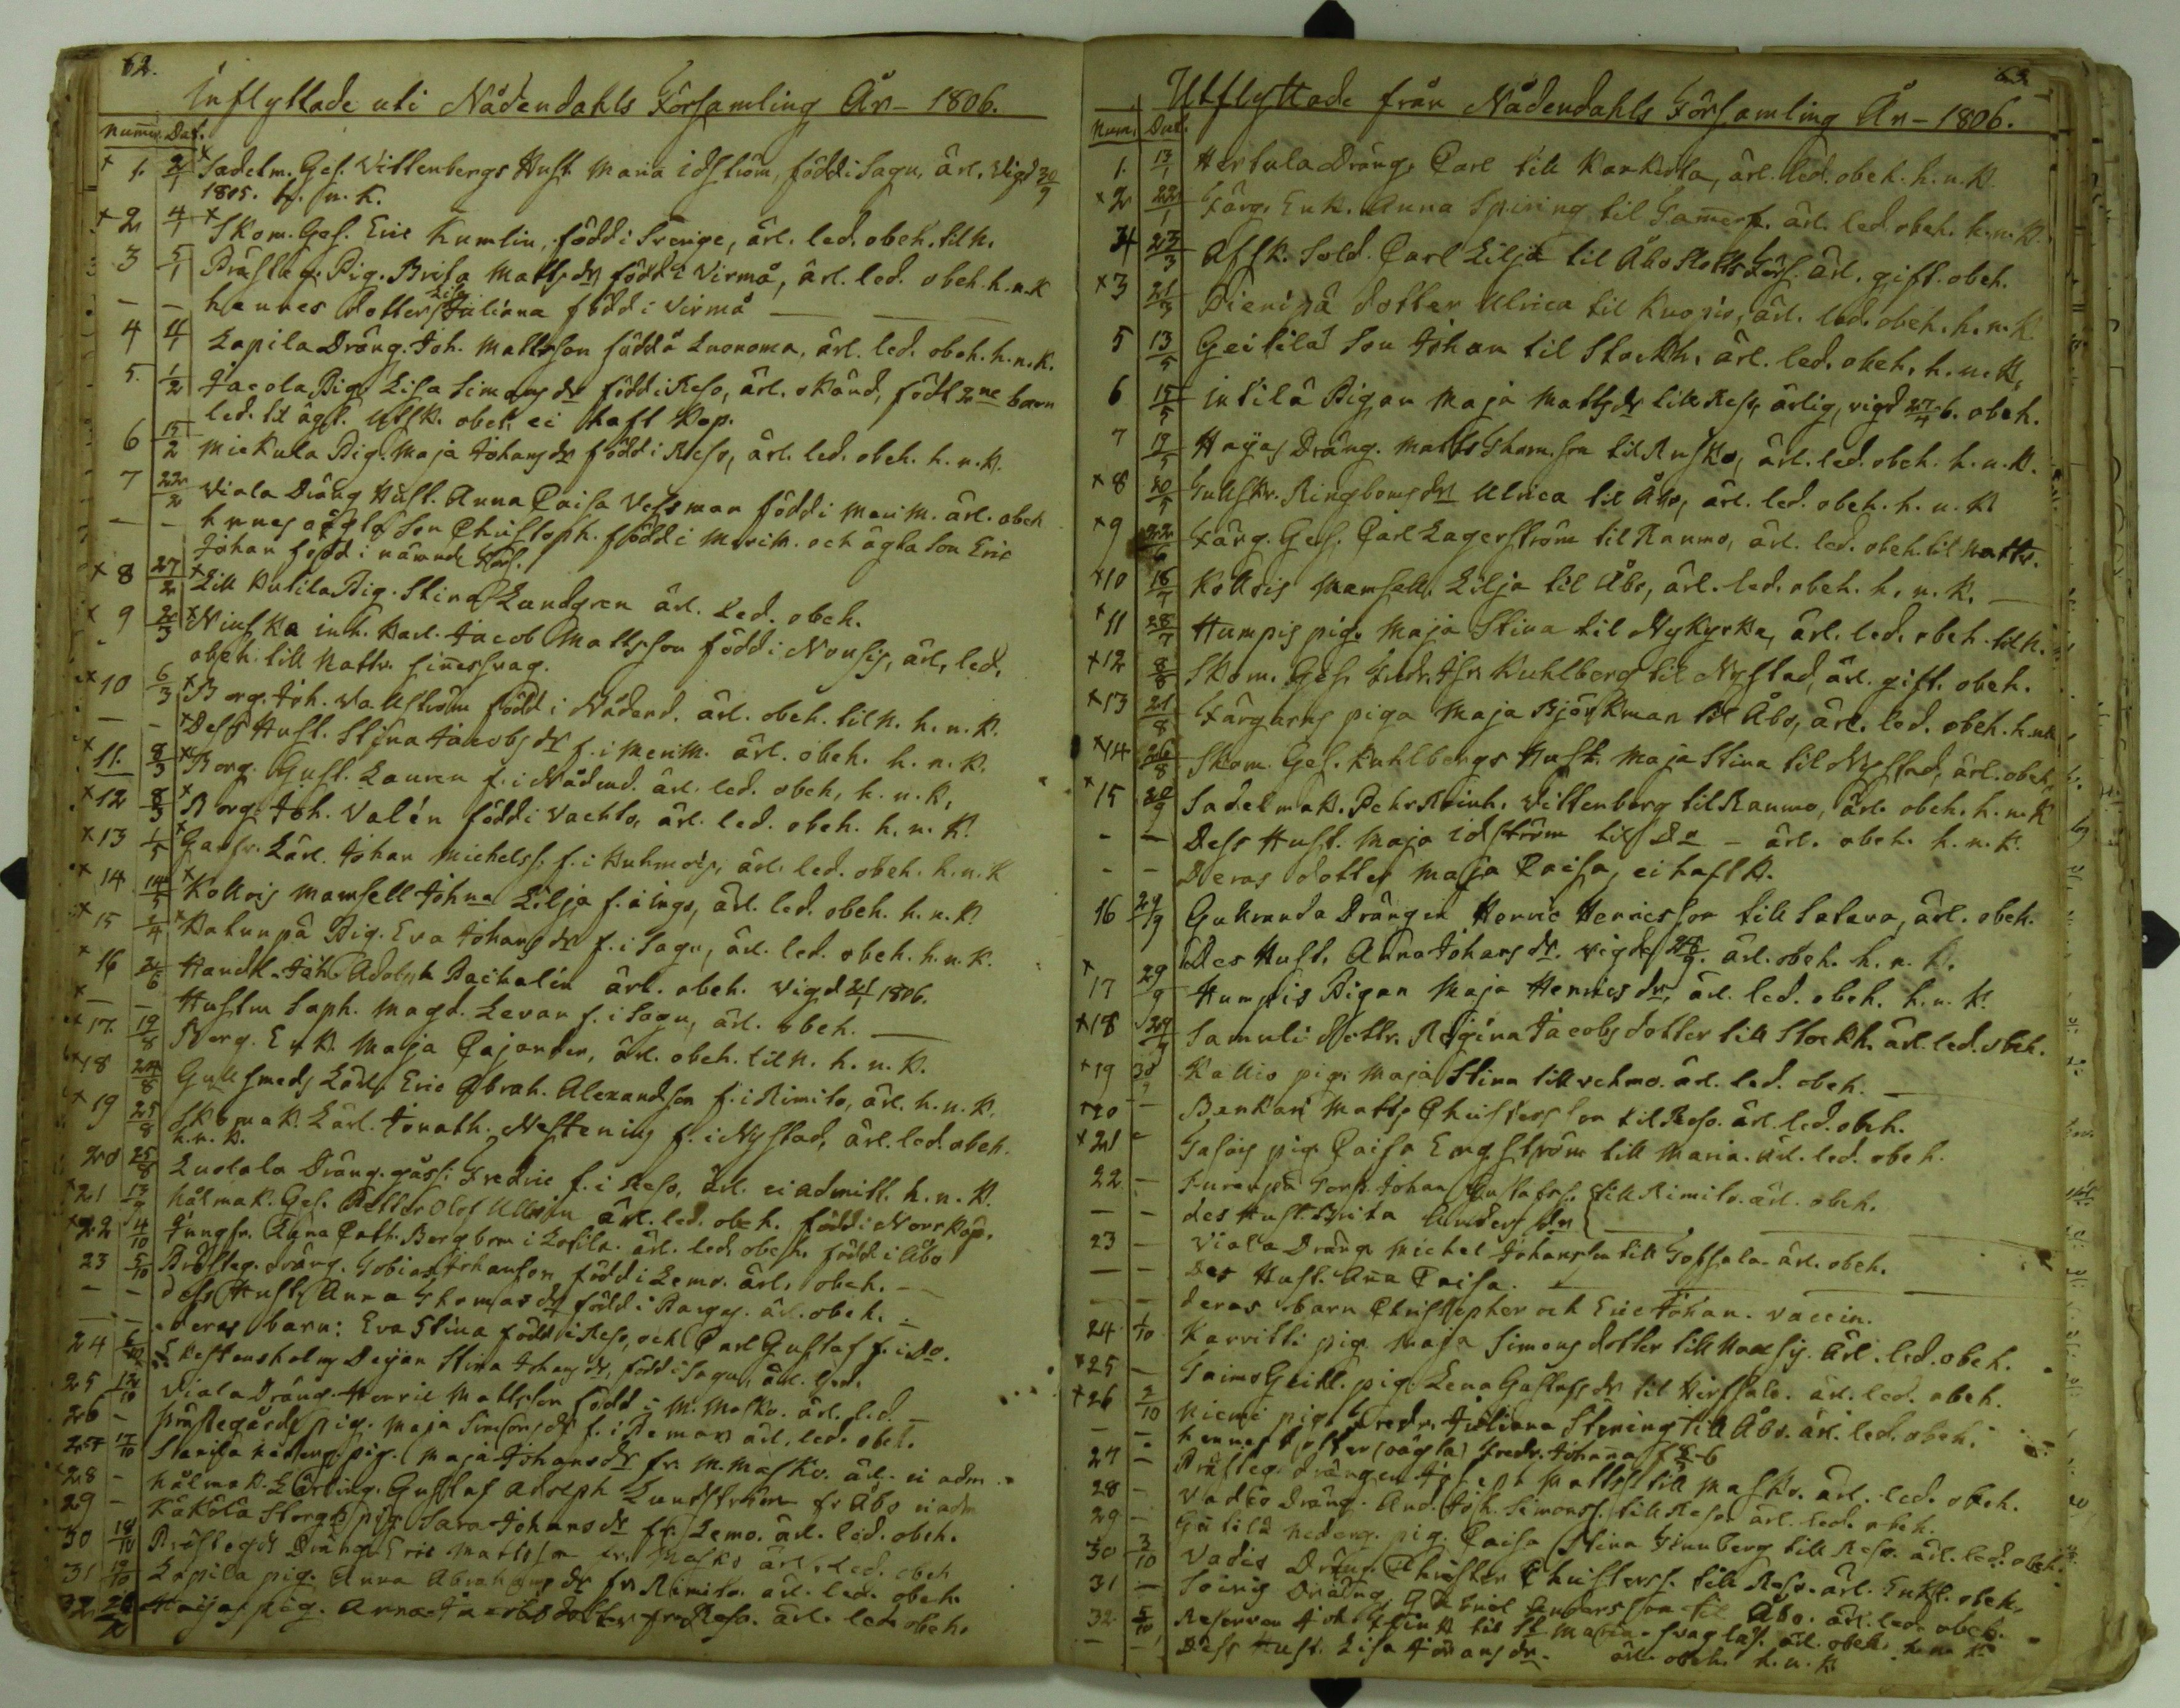 62.
Inflyttade uti Nådendahls Församling År - 1806.
Num. Dat.
+ 1. 2/1 Sadelm. Ges. Vittenbergs Hust. Maria idström, född i Sagu, ärl. vigd 30/9
1805. h. n. K.
+ 2 4/1 Skom. Ges. Eric Kumlin, född i Sverige, ärl. led. obeh. til N.
3 5/1 Prästeg. Pig. Brita Mattsdr född i Virmå, ärl. led. obeh. h. n. K
— — hennes dotter Juliana född i Virmå —
4 4/1 Lapila Dräng. Joh. Mattsson född å Luonoma, ärl. led. obeh. h. n. K.
5. 1/2 Jacola Pig. Lisa Simonsdr född i Reso, ärl. skänd, födt 2ne barn
led. til ägt. utsk. obeh. ei haft Kop.
6 15/2 Mickula Pig. Maja Johansdr född i Reso, ärl. led. obeh. h. n. K.
7 22/2 Viala Dräng Hust. Anna Caisa Vessman född i Merim. ärl. obeh
— — hennes oägta Son Christoph. född i Merim. och ägta Son Eric
Johan född i nämnde Förs.
+ 8 27/2 Lill Kulila Pig. Stina Lundgren ärl. led. obeh.
+ 9 2/3 Niuska inh. Karl. Jacob Mattsson född i Nousis, ärl. led.
obeh. till Nattv. sinessvag.
+ 10 6/3 Borg. Joh. Vallström född i Nådend. ärl. obeh. til N. h. n. K.
— — Dess Hust. Stina Jacobsdr f. i Merim. ärl. obeh. h. n. K.
+ 11. 8/3 Borg. Gust. Lauren f. i Nådend. ärl. led. obeh, h. n. K,
+ 12 8/3 Borg. Joh. Valén född i Vachto, ärl. led. obeh. h. n. K.
+ 13 1/5 Garfv. Lärl. Johan Michelss. f. i Kuhmois, ärl. led. obeh. h. n. K
+ 14 14/5 Kollois Mamsell Johna Lilja f. i ingo, ärl. led. obeh. h. n. K.
+ 15 1/4 Katunpä Pig. Eva Johansdr f. i Sagu, ärl. led. obeh. h. n. K.
+ 16 26/6 Handl. Joh. Adolph Pachalén ärl. obeh. vigd 1806.
+ — — Hustru Soph. Magd. Levan f. i Sagu, ärl. obeh. —
+ 17. 19/8 Borg. Enk. Maja Cajander, ärl. obeh. til N. h. n. K.
+ 18 24/8 Gullsmeds Lärl. Eric Abrah. Alexandson f. i Rimito, ärl. h. n. K.
+ 19 25/8 Skomak. Lärl. Jonath. Nestenius f. i Nystad, ärl. led. obeh.
h. n. K.
20 25/8 Luolala Dräng. gåss: Fredric f. i Reso, ärl. ei admitt. h. n. K.
+ 21 13/9 Råtmak. Ges. Petter Olof ärl. led. obeh. född i Norrköp.
+ 22 4/10 Jungfr. Anna Cath. Bergbom i Lotila. ärl. led. obeh. född i Åbo
23 5/10 Prästeg. dräng. Tobias Johanson född i Lemo. ärl. obeh.
— — dess Hust. Anna Thomasdr född i Pargas. ärl. obeh.
— — deras barn: Eva Stina född i Reso, och Carl Gustaf f. i Do.
24 Kestensholms Dejan Stina Johansdr, född i Sagu, ärl. led.
25 12/10 Viala Dräng. Henric Mattsson född i M. Masko. ärl. led.
26 — Prästegårds pig. Maja Simonsdr f. i Lemo ärl. led. obeh.
27 17/10 pig. Maja Johansdr fr. M. Masko. ärl. ei adm
28 — Råtmak. Lärling. Gustaf Adolph Lundström fr Åbo ei adm
29 — pig Sara Johansdr fr. Lemo. ärl. led. obeh.
30 18/10 Prästegds Dräng Eric Mattsson fr. Masko ärl. led. obeh
31 19/10 Lapila pig. Anna Abrahamsdr fr. Rimito. ärl. led. obeh.
32 pig. Anna Jacobsdotter fr Reso. ärl. led. obeh.
63
Utflyttade från Nådendahls Församling År - 1806.
Num. Dat.
1. 13/1 Hertula Dräng. Carl till Karkula, ärl. led. obeh. h. n. K.
+ 2 22/1 Färg. Enk. Anna Spiring til Tamerf. ärl. led. obeh. h. n. K.
4 23/3 Afsk. Sold. Carl Lilja til Åbo Slotts Förs. ärl. gift. obeh.
+ 3 21/3 Pienipä dotter Ulrica til Kuopio, ärl. led. obeh. h. n. K.
5 13/5 Geitila Son Johan til Stockh. ärl. led. obeh. h. n. K,
6 15/5 intilä Pigan Maja Mattsdr till Reso, ärlig, vigd 27/4 6. obeh.
7 19/5 Hayas Dräng. Matts Thom.son til Rusko, ärl. led. obeh. h. n. K.
+ 8 20/5 Ringbomsdr Ulrica til Åbo, ärl. led. obeh. h. n. K
+ 9 22/6 Färg. Ges. Carl Lagerström til Raumo, ärl. led. obeh. til Nattv.
+ 10 18/7 Kollois Mamsell. Lilja til Åbo, ärl. led. obeh. h. n. K. —
+ 11 28/7 Humpis pig. Maja Stina til Nykyrka, ärl. led. obeh. til N.
+ 12 8/8 Skom. Ges. Kuhlberg til Nystad, ärl. gift. obeh.
+ 13 21/8 Färgarns piga Maja Björkman til Åbo, ärl. led. obeh. h. n. K
+ 14 26/8 Skom. Ges. Kuhlbergs Hust. Maja Stina til Nystad, ärl. obeh,
+ 15 20/9 Sadelmak. Pehr Reinh. Vittenberg til Raumo, ärl. obeh. h. n. K
- — Dess Hust. Maja idström til Do - ärl. obeh. h. n. K.
- - Deras dotter Maja Caisa, ei haft K.
16 29/9 Gukranda Drängen Henric Henricsson till Satava, ärl. obeh.
Des Hust. Anna Johansdr. vigde 28/9. ärl. obeh. h. n. K.
+ 17 29/9 Humpis Pigan Maja Henricsdr, ärl. led. obeh. h. n. K.
+ 18 29/9 Samuli Regina Jacobsdotter till Stockh. ärl. led. obeh.
+ 19 30/9 Kallis pig. Maja Stina till Vehmo. ärl. led. obeh. —
+ 20 — Benkari Matts Christersson til Reso. ärl. led. obeh.
+ 21 — pig. Caisa Engström till Maria. ärl. led. obeh.
22 — Torp. Johan Gustafss. till Rimito. ärl. obeh.
— — des Hust. Brita Andersdr
23 — Viala Dräng Michel Johansson till Totsala ärl. obeh.
— — Des Hust. Anna Caisa. —
— — deras barn Christopher och Eric Johan. vaccin.
24. 1/10 Karvitti pig. Maja Simonsdotter till Nousis. ärl. led. obeh.
+ 25 — pig. Lena Gustafsdr til Hirfsalo. ärl. led. obeh.
+ 26 2/10 Niemi pig. Fredr. Juliana till Åbo. ärl. led. obeh.
— — hennes dotter (oägta) Fredr. Johanna
27 — Prästeg. drängen Joseph Mattss till Masko. ärl. led. obeh.
28 — Dräng. And. Joh. Simonss. till Reso ärl. led. obeh.
29 — nederg. pig. Caisa Stina till Reso. ärl. led. obeh.
30 3/10 Vadis Dräng. Christer Christerss. till Reso. ärl. Enkl. obeh.
31 — Soinis Dräng Andersson til Åbo. ärl. led. obeh.
32. 5/10 Reserven Joh. til St Maria. ärl. obeh. h. n. K
— — Dess Hust. Lisa Johansdr. ärl. obeh. h. n. K